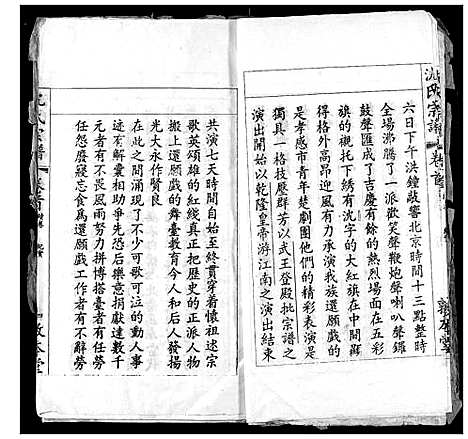 沈氏宗譜 卷首
六日下午洪鐘敲響北京時間十三點整時
全場沸騰了一派歡笑聲鞭炮聲喇叭聲鑼
鼓聲匯成了吉慶有餘的熱烈場面在五彩
旗的襯托下绣有沈字的大紅旗在中間顯
得格外高昂迎風有力承演我族還願戲的
是孝感市青年楚劇團他們的精彩表演是
獨具一格技壓群芳以武王登殿批宗譜之
演出開始以乾隆皇帝游江南之演出結束
共演七天時間自始至終貫穿着懷祖述宗
歌英頌雄的紅綫真正把歷史的正派人物
搬上還願戲的舞臺教育今人和后人發揚
光大永作賢良
在此之間涌現了不少可歌可泣的動人事
迹有解橐相助爭先恐后樂意捐獻達數千
元者有不畏風雨努力拼博搭臺者有任勞
任怨廢寢忘食為還願戲工作者有不辭勞
沈氏宗譜 卷首